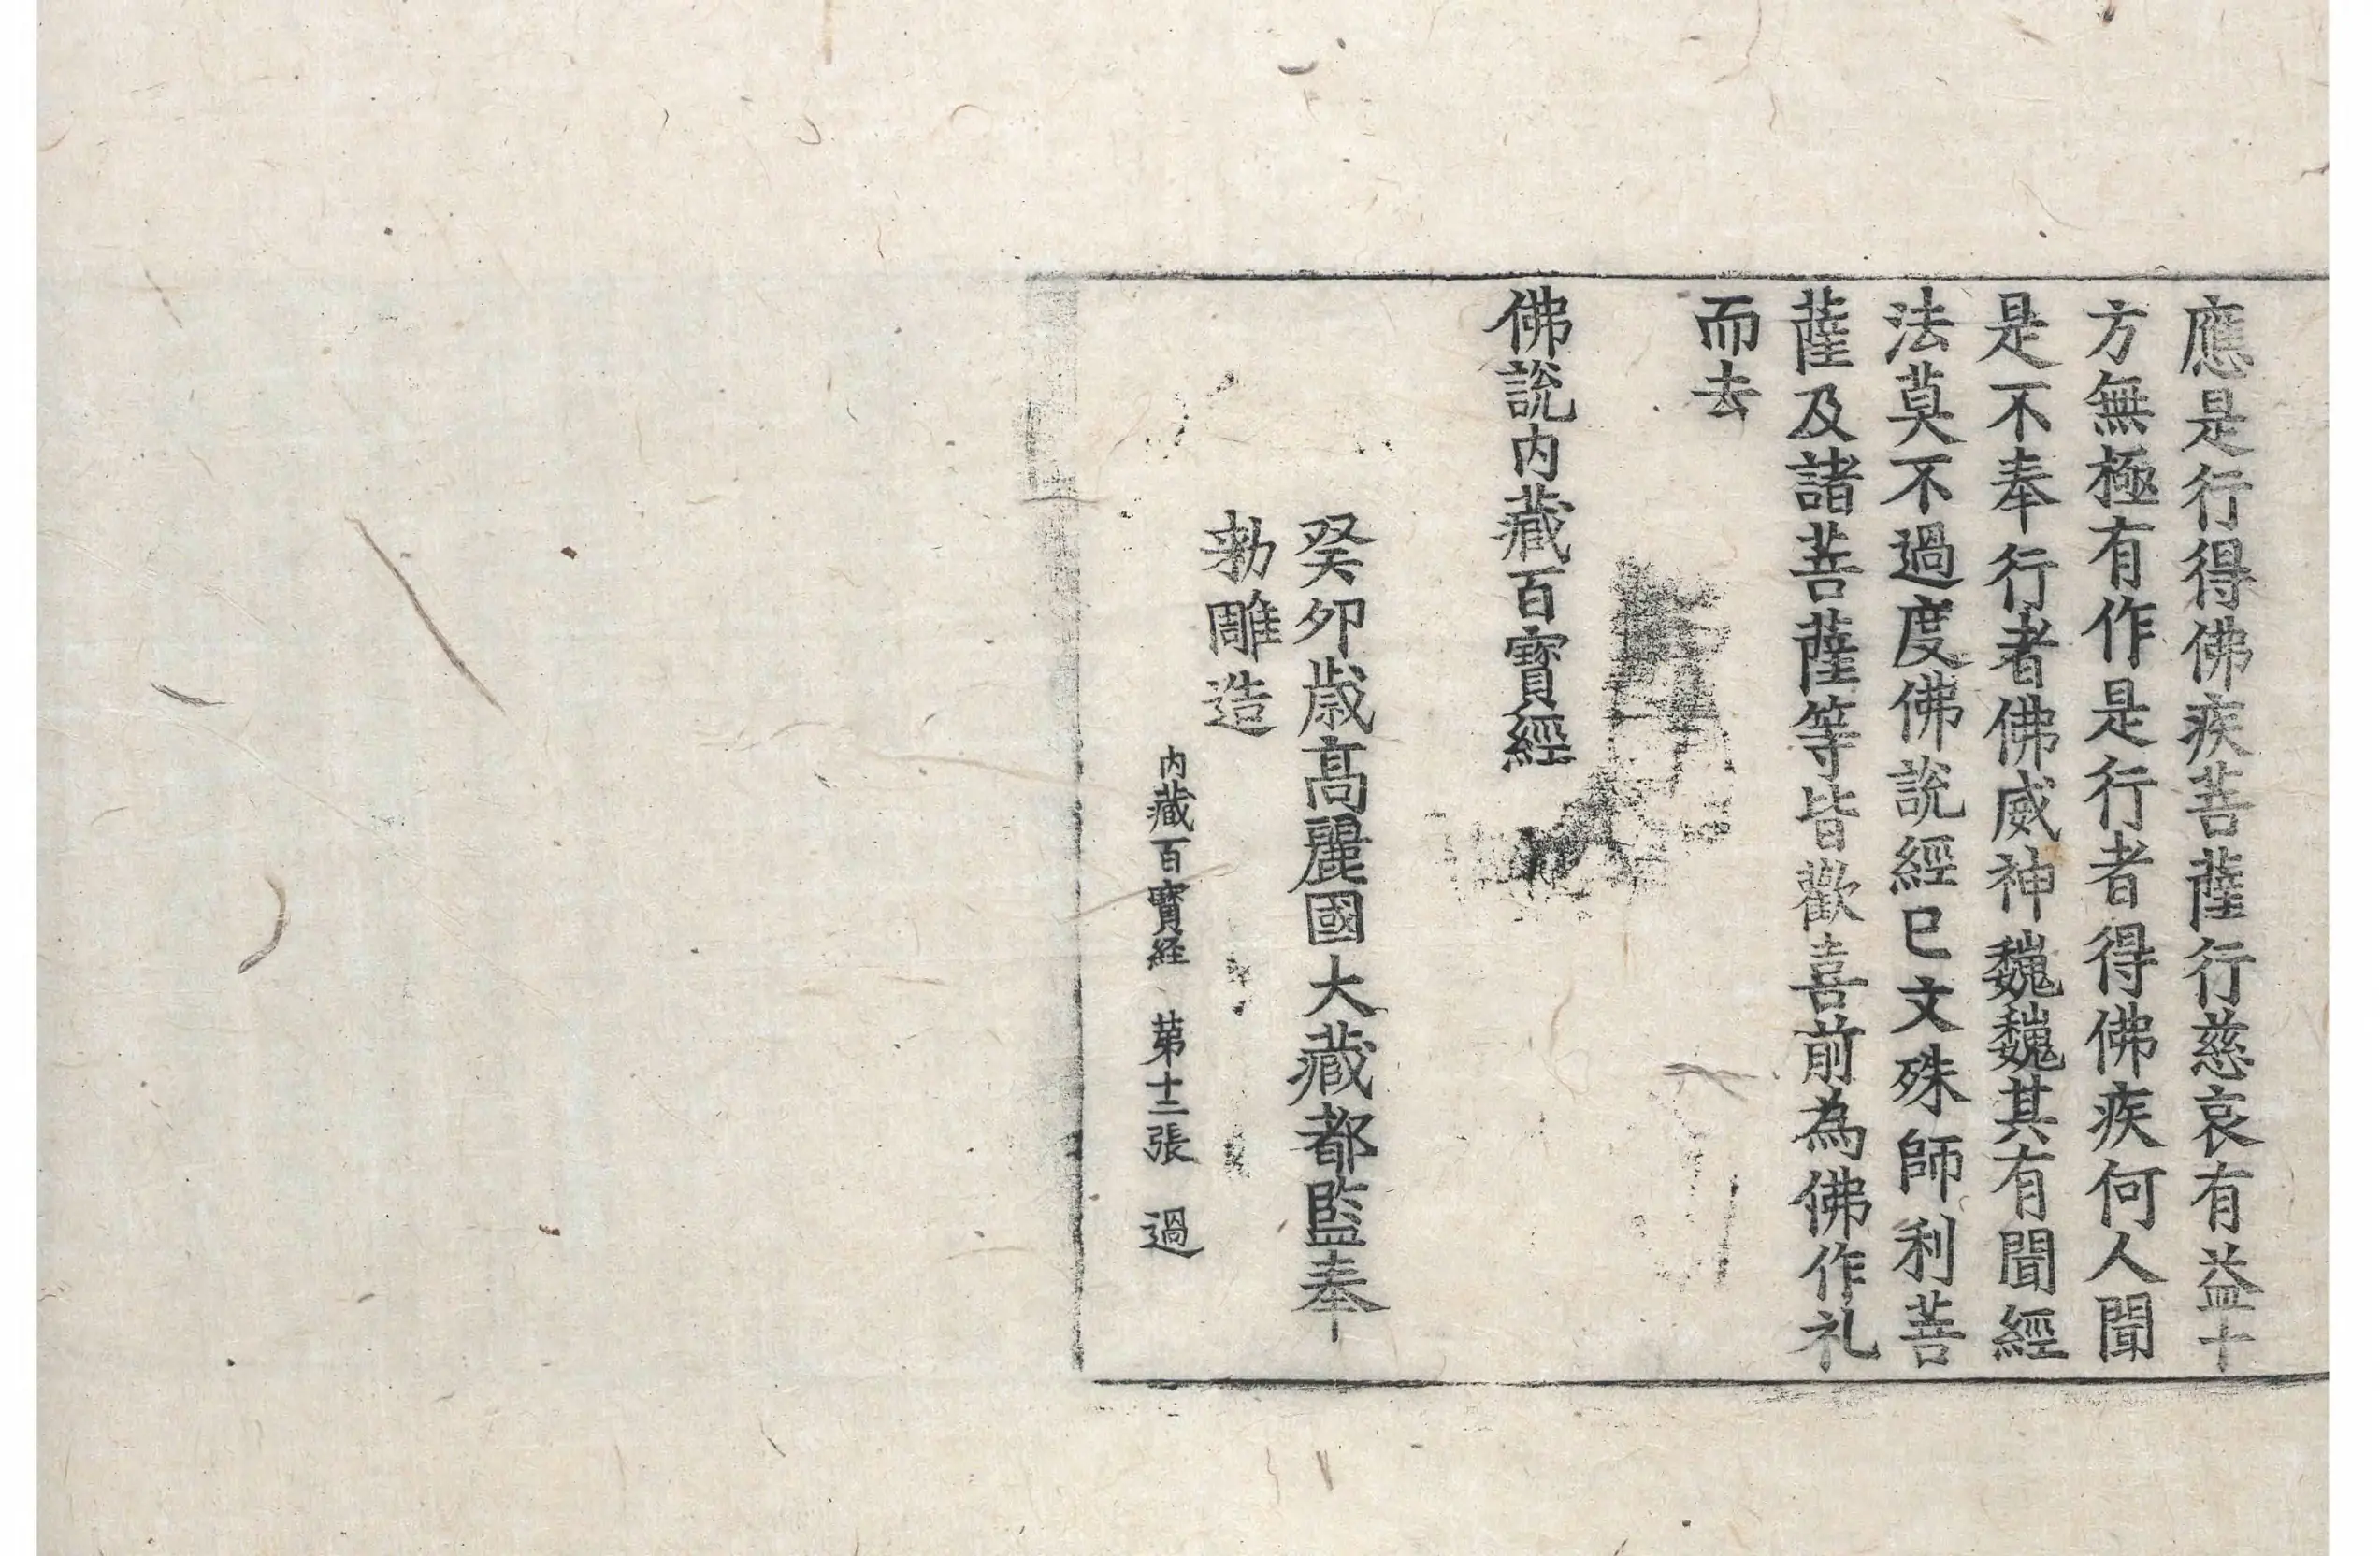 應是行得佛疾菩薩行慈哀有益十
方無極有作是行者得佛疾何人聞
是不奉行者佛威神巍巍其有聞經
法莫不過度佛説經已文殊師利菩
薩及諸菩薩等皆歡喜前為佛作礼
而去
佛説内藏百寶經
癸卯歳高麗國大藏都監奉
勑雕造
内藏百寶経 苐十二張 過